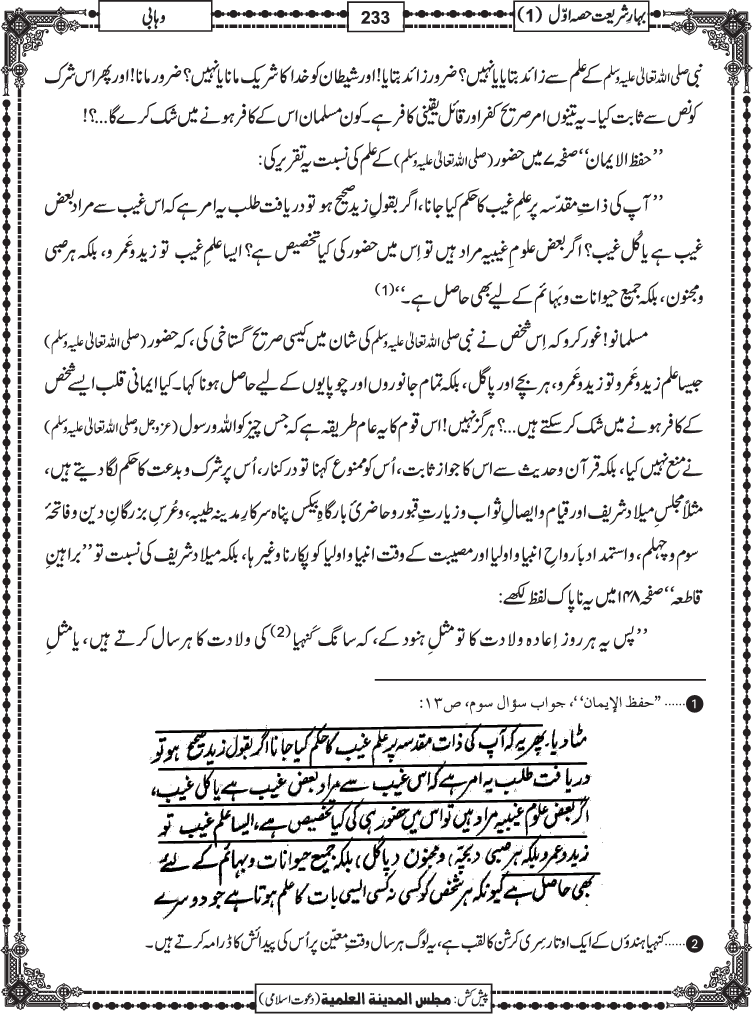 بہارِشریعت حصہ اوّل (1)
233
وہابی
نبی صلی اللہ تعالیٰ علیہ وسلم کے علم سے زائد بتایا یا نہیں؟ ضرور زائد بتایا! اور شیطان کو خدا کا شریک مانا یا نہیں؟ ضرور مانا! اور پھر اس شرک
کو نص سے ثابت کیا۔ یہ تینوں امر صریح کفر اور قائل یقینی کافر ہے۔ کون مسلمان اس کے کافر ہونے میں شک کرے گا...؟!
’’حفظ الایمان‘‘ صفحہ ۷ میں حضور (صلی اللہ تعالیٰ علیہ وسلم) کے علم کی نسبت یہ تقریر کی:
’’آپ کی ذاتِ مقدّسہ پر علمِ غیب کا حکم کیا جانا، اگر بقولِ زید صحیح ہو تو دریافت طلب یہ امر ہے کہ اس غیب سے مراد بعض
غیب ہے یا کُل غیب؟ اگر بعض علومِ غیبیہ مراد ہیں تو اِس میں حضور کی کیا تخصیص ہے؟ ایسا علمِ غیب تو زید و عَمر و، بلکہ ہر صبی
و مجنون، بلکہ جمیع حیوانات و بَہائم کے لیے بھی حاصل ہے۔‘‘ (1)
مسلمانو! غور کرو کہ اِس شخص نے نبی صلی اللہ تعالیٰ علیہ وسلم کی شان میں کیسی صریح گستاخی کی، کہ حضور (صلی اللہ تعالیٰ علیہ وسلم)
جیسا علم زید و عَمرو تو زید و عَمرو، ہر بچے اور پاگل، بلکہ تمام جانوروں اور چوپایوں کے لیے حاصل ہونا کہا۔ کیا ایمانی قلب ایسے شخص
کے کافر ہونے میں شک کر سکتے ہیں...؟ ہرگز نہیں! اس قوم کا یہ عام طریقہ ہے کہ جس چیز کو اللہ و رسول (عزوجل وصلی اللہ تعالیٰ علیہ وسلم)
نے منع نہیں کیا، بلکہ قرآن و حدیث سے اس کا جواز ثابت، اُس کو ممنوع کہنا تو درکنار، اُس پر شرک و بدعت کا حکم لگا دیتے ہیں،
مثلاً مجلسِ میلاد شریف اور قیام و ایصالِ ثواب و زیارتِ قبور و حاضریٔ بارگاہِ بیکس پناہ سرکارِ مدینہ طیبہ، و عُرسِ بزرگانِ دین و فاتحۂ
سوم و چہلم، و استمداد بأرواحِ انبیا و اولیا اور مصیبت کے وقت انبیا و اولیا کو پکارنا وغیرہا، بلکہ میلاد شریف کی نسبت تو ’’براہینِ
قاطعہ‘‘ صفحہ ۱۴۸ میں یہ ناپاک لفظ لکھے:
’’پس یہ ہر روز اِعادہ ولادت کا تو مثلِ ہنود کے، کہ سانگ کَنہیا (2) کی ولادت کا ہر سال کرتے ہیں، یا مثلِ
1 ...... ”حفظ الإیمان‘‘، جواب سؤال سوم، ص۱۳:
مٹا دیا۔ پھر یہ کہ آپ کی ذات مقدسہ پر علم غیب کا حکم کیا جانا اگر بقول زید صحیح ہو تو
دریافت طلب یہ امر ہے کہ اس غیب سے مراد بعض غیب ہے یا کل غیب،
اگر بعض علوم غیبیہ مراد ہیں تو اس میں حضور ہی کی کیا تخصیص ہے، ایسا علم غیب تو
زید و عمرو بلکہ ہر صبی (بچّہ) و مجنون (پاگل) بلکہ جمیع حیوانات و بہائم کے لئے
بھی حاصل ہے کیونکہ ہر شخص کو کسی نہ کسی ایسی بات کا علم ہوتا ہے جو دوسرے
2 ...... کنہیا ہندؤں کے ایک اوتار سِری کرشن کا لقب ہے، یہ لوگ ہر سال وقتِ معیّن پر اُس کی پیدائش کا ڈرامہ کرتے ہیں۔
پیش کش: مجلس المدينة العلمية (دعوت اسلامی)